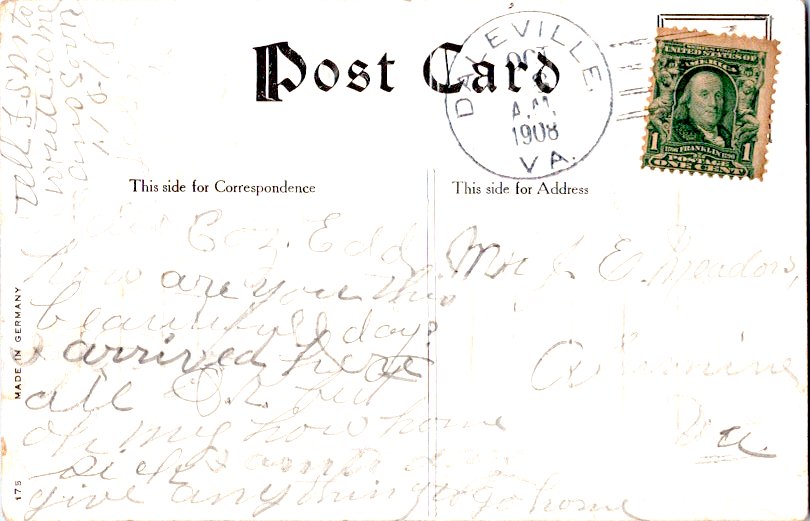 Post Card
DALEVILLE.
OCT
A.M.
1908
VA.
UNITED STATES OF
AMERICA
1 FRANKLIN 1
POSTAGE
ONE CENT
This side for Correspondence
This side for Address
Coz. Edd
how are you this
beautiful day?
I arrived here
all O.K. but
oh my how home
sick I am I'd
give anything to go home
Tell
to write me
Mr J. E. Meadors,
Va.
MADE IN GERMANY
175